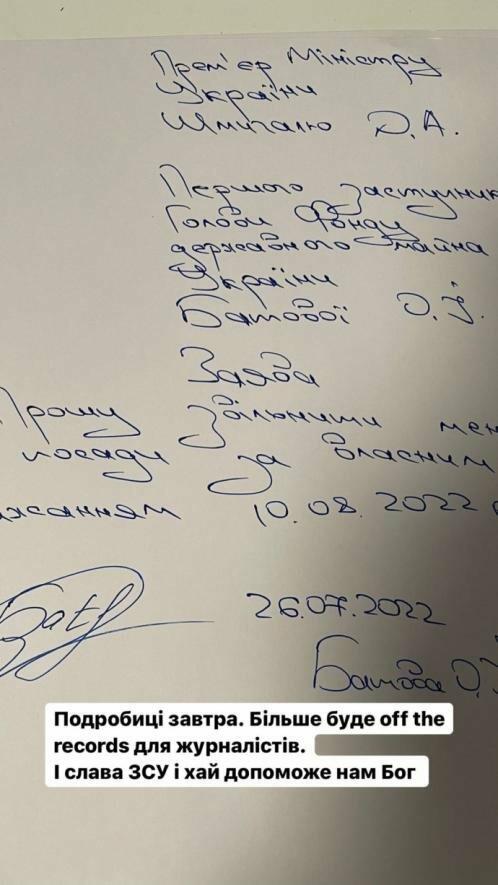 Прем'єр Міністру
України
Шмигалю Д.А.
Першого Заступник
Голови Фонду
державного майна
України
Батової О.І.
Заява
Прошу Звільнити мен
посади за власним
жанням 10.08.2022
26.07.2022
Батова О.
Подробиці завтра. Більше буде off the
records для журналістів.
І слава ЗСУ і хай допоможе нам Бог